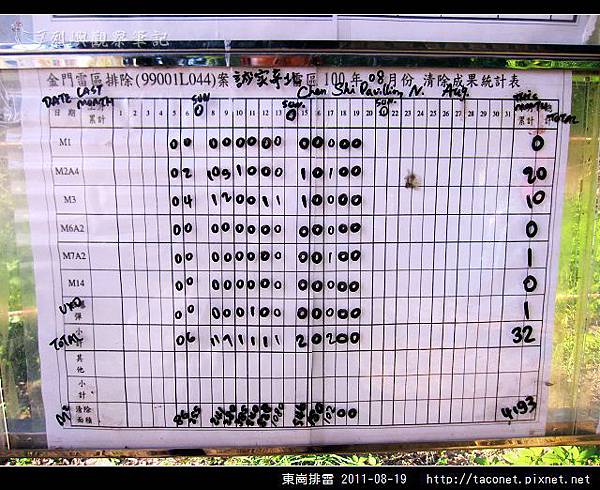 烈嶼觀察筆記
金門雷區排除(99001L044)案 誠家亭北雷區 100年08月份 清除成果統計表
DATE LAST MONTH SUN Chen Shi Pavillion N. Aug. SUN. SUN THIS MONTH TOTAL
日期 累計 1 2 3 4 5 6 7 8 9 10 11 12 13 14 15 16 17 18 19 20 21 22 23 24 25 26 27 28 29 30 31 累計
M1 0 0 0 0 0 0 0 0 0 0 0 0 0 0
M2A4 0 2 10 5 1 0 0 0 1 0 1 0 0 20
M3 0 4 1 2 0 0 1 1 1 0 0 0 10
M6A2 0 0 0 0 0 0 0 0 0 0 0 0 0 0
M7A2 0 0 0 0 0 0 0 0 0 0 1 0 0 1
M14 0 0 0 0 0 0 0 0 0 0 0 0 0 0
UXO 彈 0 0 0 0 0 1 0 0 0 0 0 0 0 1
TOTAL 小 0 6 11 7 1 1 1 1 2 0 2 0 0 32
其他
小計
M2 清除面積 102 0 0 4,193
東崗排雷 2011-08-19 http://taconet.pixnet.net